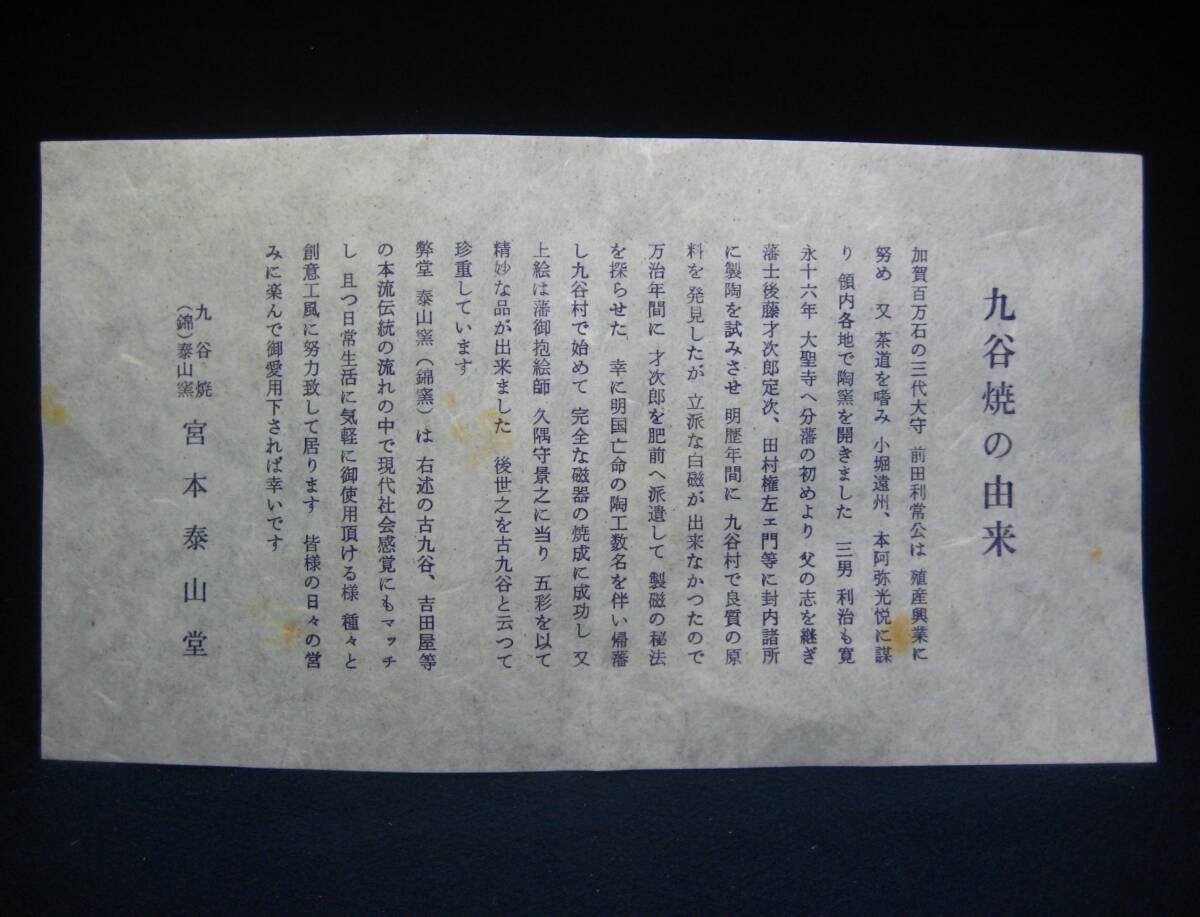 九谷焼の由来
加賀百万石の三代大守 前田利常公は 殖産興業に
努め 又 茶道を嗜み 小堀遠州、本阿弥光悦に謀
り 領内各地で陶窯を開きました 三男 利治も寛
永十六年 大聖寺へ分藩の初めより 父の志を継ぎ
藩士後藤才次郎定次、田村権左ェ門等に封内諸所
に製陶を試みさせ 明歴年間に 九谷村で良質の原
料を 発見したが 立派な白磁が 出来なかつたので
万治年間に 才次郎を肥前へ派遣して 製磁の秘法
を探らせた 幸に明国亡命の陶工数名を伴い帰藩
し九谷村で始めて 完全な磁器の焼成に成功し 又
上絵は藩御抱絵師 久隅守景之に当り 五彩を以て
精妙な品が出来ました 後世之を古九谷と云つて
珍重しています
弊堂 泰山窯(錦窯)は 右述の古九谷、吉田屋等
の本流伝統の流れの中で現代社会感覚にもマッチ
し 且つ日常生活に気軽に御使用頂ける様 種々と
創意工風に努力致して居ります 皆様の日々の営
みに楽んで御愛用下されば幸いです
九谷焼
(錦)泰山窯
宮本泰山堂